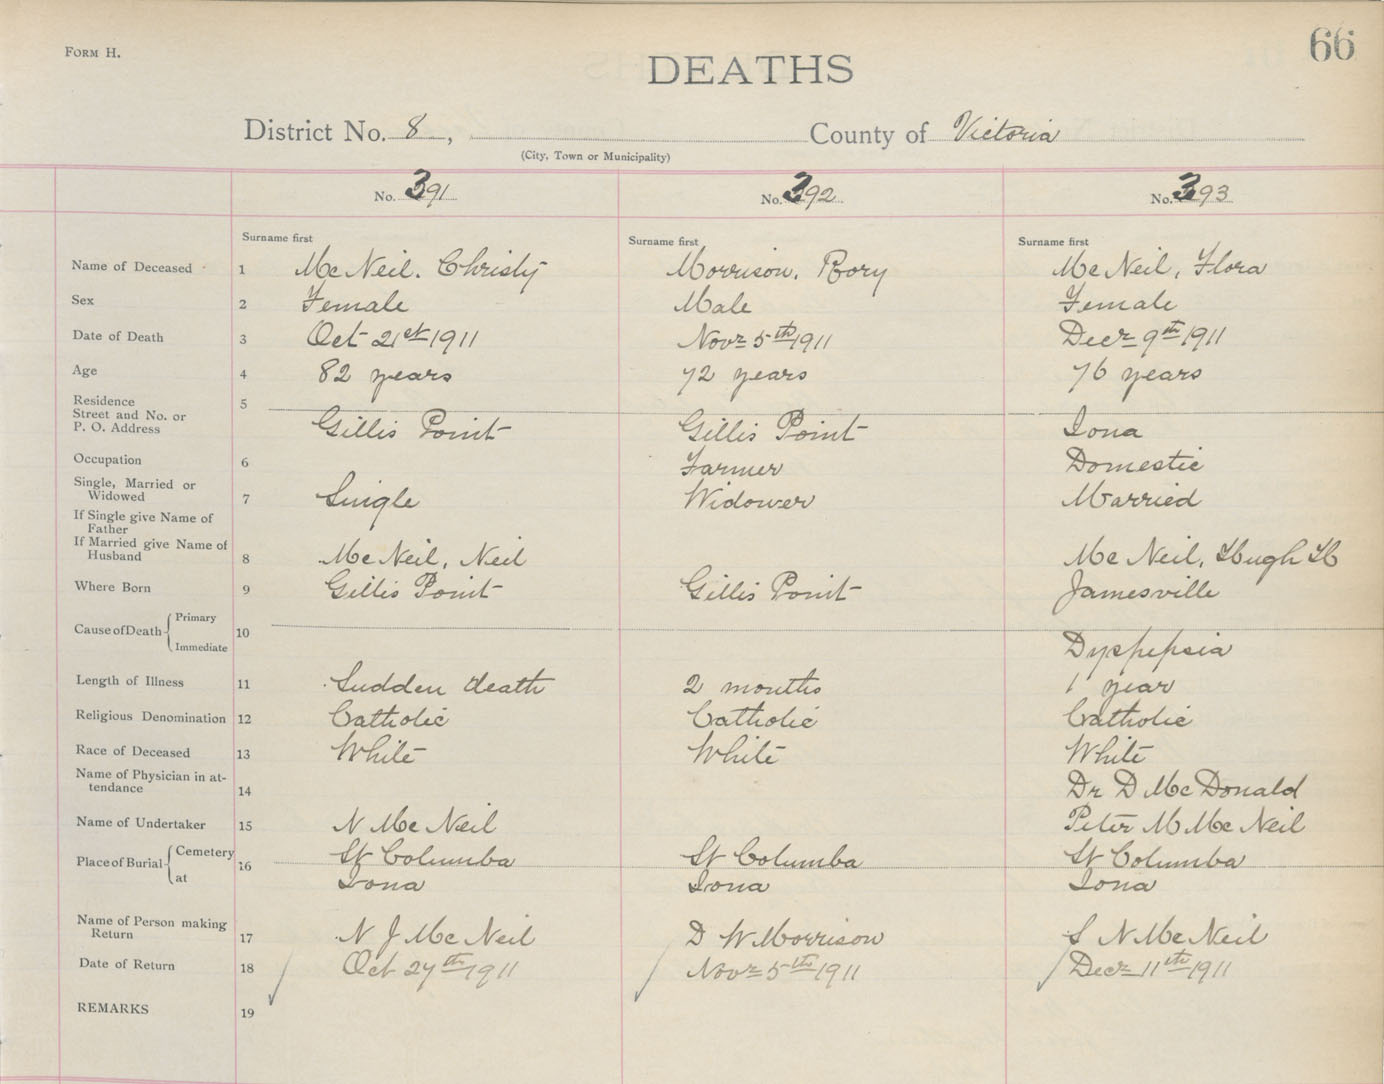 FORM H.
66
DEATHS
District No. 8, County of Victoria
(City, Town or Municipality)
No. 391 No. 392 No. 393
Surname first Surname first Surname first
Name of Deceased 1 McNeil. Christy Morrison, Rory McNeil, Flora
Sex 2 Female Male Female
Date of Death 3 Oct 21st 1911 Novr 5th 1911 Decr 9th 1911
Age 4 82 years 72 years 76 years
Residence 5
Street and No. or
P. O. Address Gillis Point Gillis Point Iona
Occupation 6 Farmer Domestic
Single, Married or
Widowed 7 Single Widower Married
If Single give Name of
Father
If Married give Name of
Husband 8 McNeil, Neil McNeil, Hugh H
Where Born 9 Gillis Point Gillis Point Jamesville
Cause of Death Primary
Immediate 10 Dyspepsia
Length of Illness 11 Sudden death 2 months 1 year
Religious Denomination 12 Catholic Catholic Catholic
Race of Deceased 13 White White White
Name of Physician in at-
tendance 14 Dr D McDonald
Name of Undertaker 15 N McNeil Peter M McNeil
Place of Burial Cemetery 16 St Columba St Columba St Columba
at Iona Iona Iona
Name of Person making
Return 17 N J McNeil D W Morrison S N McNeil
Date of Return 18 Oct 27th 1911 Novr 5th 1911 Decr 11th 1911
REMARKS 19